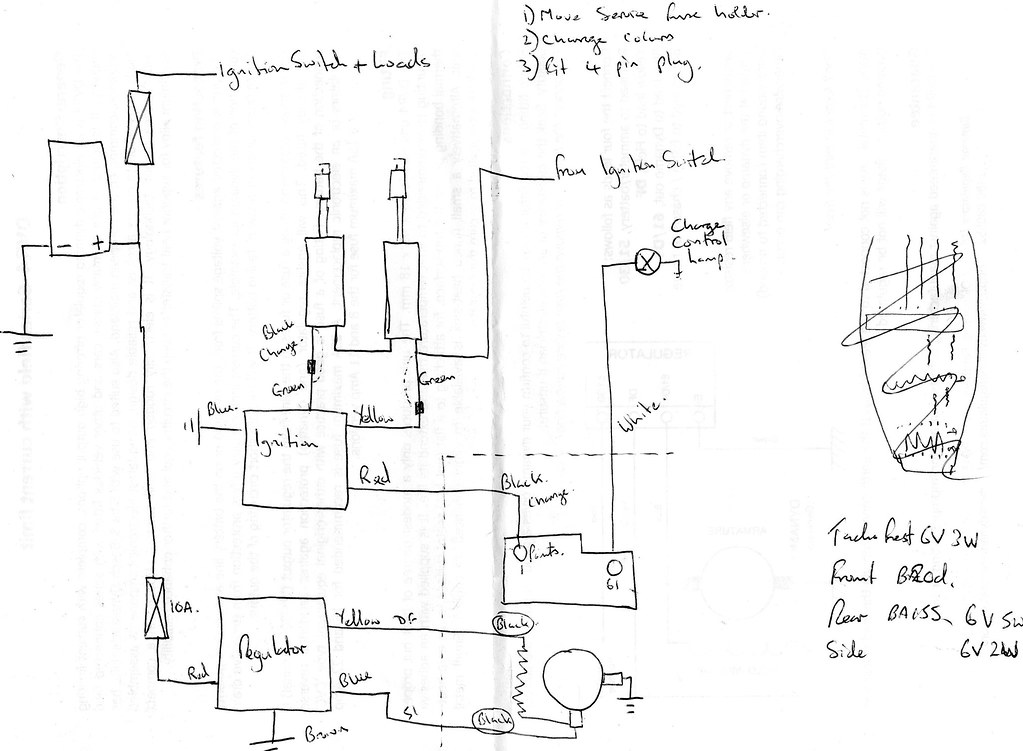 1) Move Service fuse holder.
2) Change Colours
3) Fit 4 pin plug.
Ignition Switch + Loads
from Ignition Switch
Charge
Control
Lamp.
- +
Black
Change.
Green
Green
Blue.
Yellow
Ignition
White.
Red
Black.
Change.
Points.
1
61
10A.
Regulator
Yellow DF
Black
Red
Blue
51
Black
Brown
6V 3W
Front
Rear 6V 5W
Side 6V 2W
REGULATOR